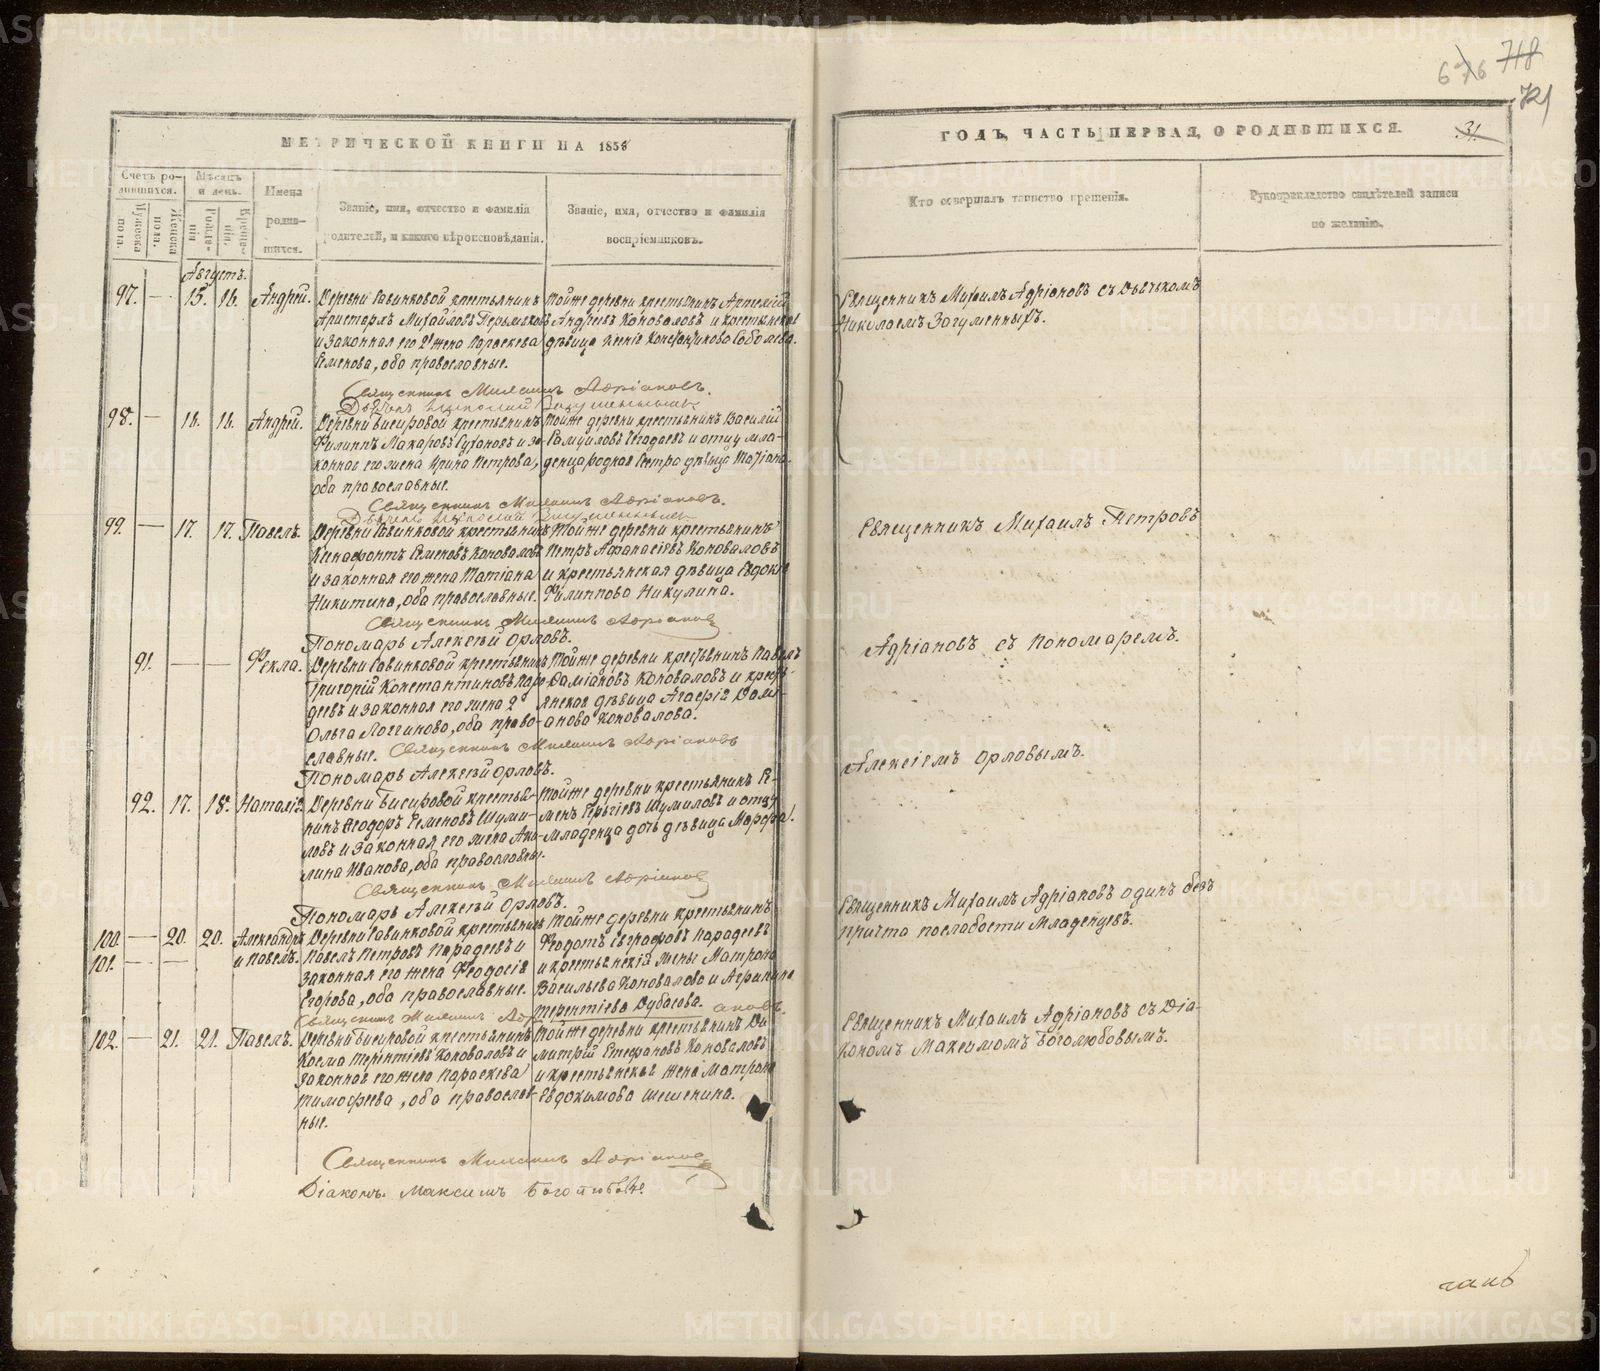 676 718
721
МЕТРИЧЕСКОЙ КНИГИ НА 1858
ГОДЪ, ЧАСТЬ ПЕРВАЯ, О РОДИВШИХСЯ.
31.
Счетъ родившихся.
Мужеска пола.
Женска пола.
Мѣсяцъ и день.
Рожденія
Крещенія.
Имена родившихся.
Званіе, имя, отчество и фамилія
родителей, и какого вѣроисповѣданія.
Званіе, имя, отчество и фамилія
воспріемниковъ.
Кто совершалъ таинство крещенія.
Рукоприкладство свидѣтелей записи
по желанію.
Августъ.
97. — 15. 16. Андрей.
Деревни Савинковой крестьянинъ
Аристархъ Михайловъ
и законная его 2я жена Параскева
Семенова, оба православные.
Тойже деревни крестьянинъ Артемій
Андреевъ Коноваловъ и крестьянская
дѣвица Ксенія Константинова Соболева.
Священникъ Михаилъ Адріановъ съ дьячкомъ
Николаемъ Загуменныхъ.
Священникъ Михаилъ Адріановъ.
Дьячекъ Николай Загуменныхъ
98. — 16. 16. Андрей.
Деревни Бисировой крестьянинъ
Филиппъ Макаровъ Сухановъ и за-
конная его жена Ирина Петрова,
оба православные.
Тойже деревни крестьянинъ Василій
Самуиловъ и отцу мла-
денца родная сестра дѣвица Татіана.
Священникъ Михаилъ Адріановъ.
Дьячекъ Николай Загуменныхъ
99. — 17. 17. Павелъ.
Деревни Савинковой крестьянинъ
Ксенофонтъ Семеновъ Коноваловъ
и законная его жена Татіана
Никитина, оба православные.
Тойже деревни крестьянинъ
Петръ Афанасіевъ Коноваловъ
и крестьянская дѣвица Евдокія
Филиппова Никулина.
Священникъ Михаилъ Петровъ
Священникъ Михаилъ Адріановъ
Пономарь Алексѣй Орловъ.
91. — — Фекла.
Деревни Савинковой крестьянинъ
Григорій Константиновъ Пара-
деевъ и законная его жена 2я
Ольга Логгинова, оба право-
славные.
Тойже деревни крестьянинъ Павелъ
Даміановъ Коноваловъ и кресть-
янская дѣвица Агафія Дамі-
анова Коновалова.
Адріановъ съ пономаремъ.
Священникъ Михаилъ Адріановъ
Пономарь Алексѣй Орловъ.
Алексіемъ Орловымъ.
92. 17. 18. Наталія.
Деревни Бисировой крестья-
нинъ Ѳеодоръ Семеновъ Шуми-
ловъ и законная его жена Аки-
лина Иванова, оба православны.
Тойже деревни крестьянинъ Се-
менъ Сергіевъ Шумиловъ и отцу
младенца дочь дѣвица Марфа.
Священникъ Михаилъ Адріановъ
Пономарь Алексѣй Орловъ.
100. — 20. 20. Александръ
101. — — и Павелъ.
Деревни Савинковой крестьянинъ
Павелъ Петровъ Парадеевъ и
законная его жена Феодосія
Егорова, оба православные.
Тойже деревни крестьянинъ
Феодотъ Евграфовъ Парадеевъ
и крестьянскія жены Матрона
Васильева Коновалова и Агрипина
Терентіева Дубасова.
Священникъ Михаилъ Адріановъ одинъ безъ
причта послабости младенцевъ.
Священникъ Михаилъ Адріановъ.
102. — 21. 21. Павелъ.
Деревни Бисировой крестьянинъ
Косма Терентіевъ Коноваловъ и
законная его жена Параскева
Тимофеева, оба православ-
ные.
Тойже деревни крестьянинъ Ди-
митрій Стефановъ Коноваловъ
и крестьянская жена Матрона
Евдокимова Шешенина.
Священникъ Михаилъ Адріановъ съ Діа-
кономъ Максимомъ Боголюбовымъ.
Священникъ Михаилъ Адріановъ
Діаконъ Максимъ Боголюбовъ
METRIKI.GASO-URAL.RU